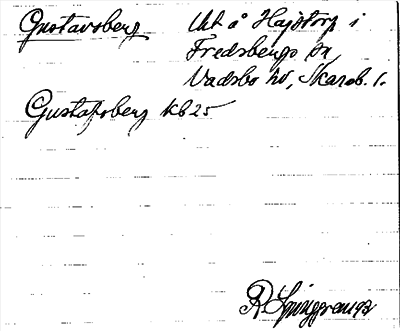 Gustavsberg
Utt å Hajstorp i
Fredsbergs sn
Vadsbo hd, Skarab. l.
Gustafsberg KB25
R Ljunggren 92